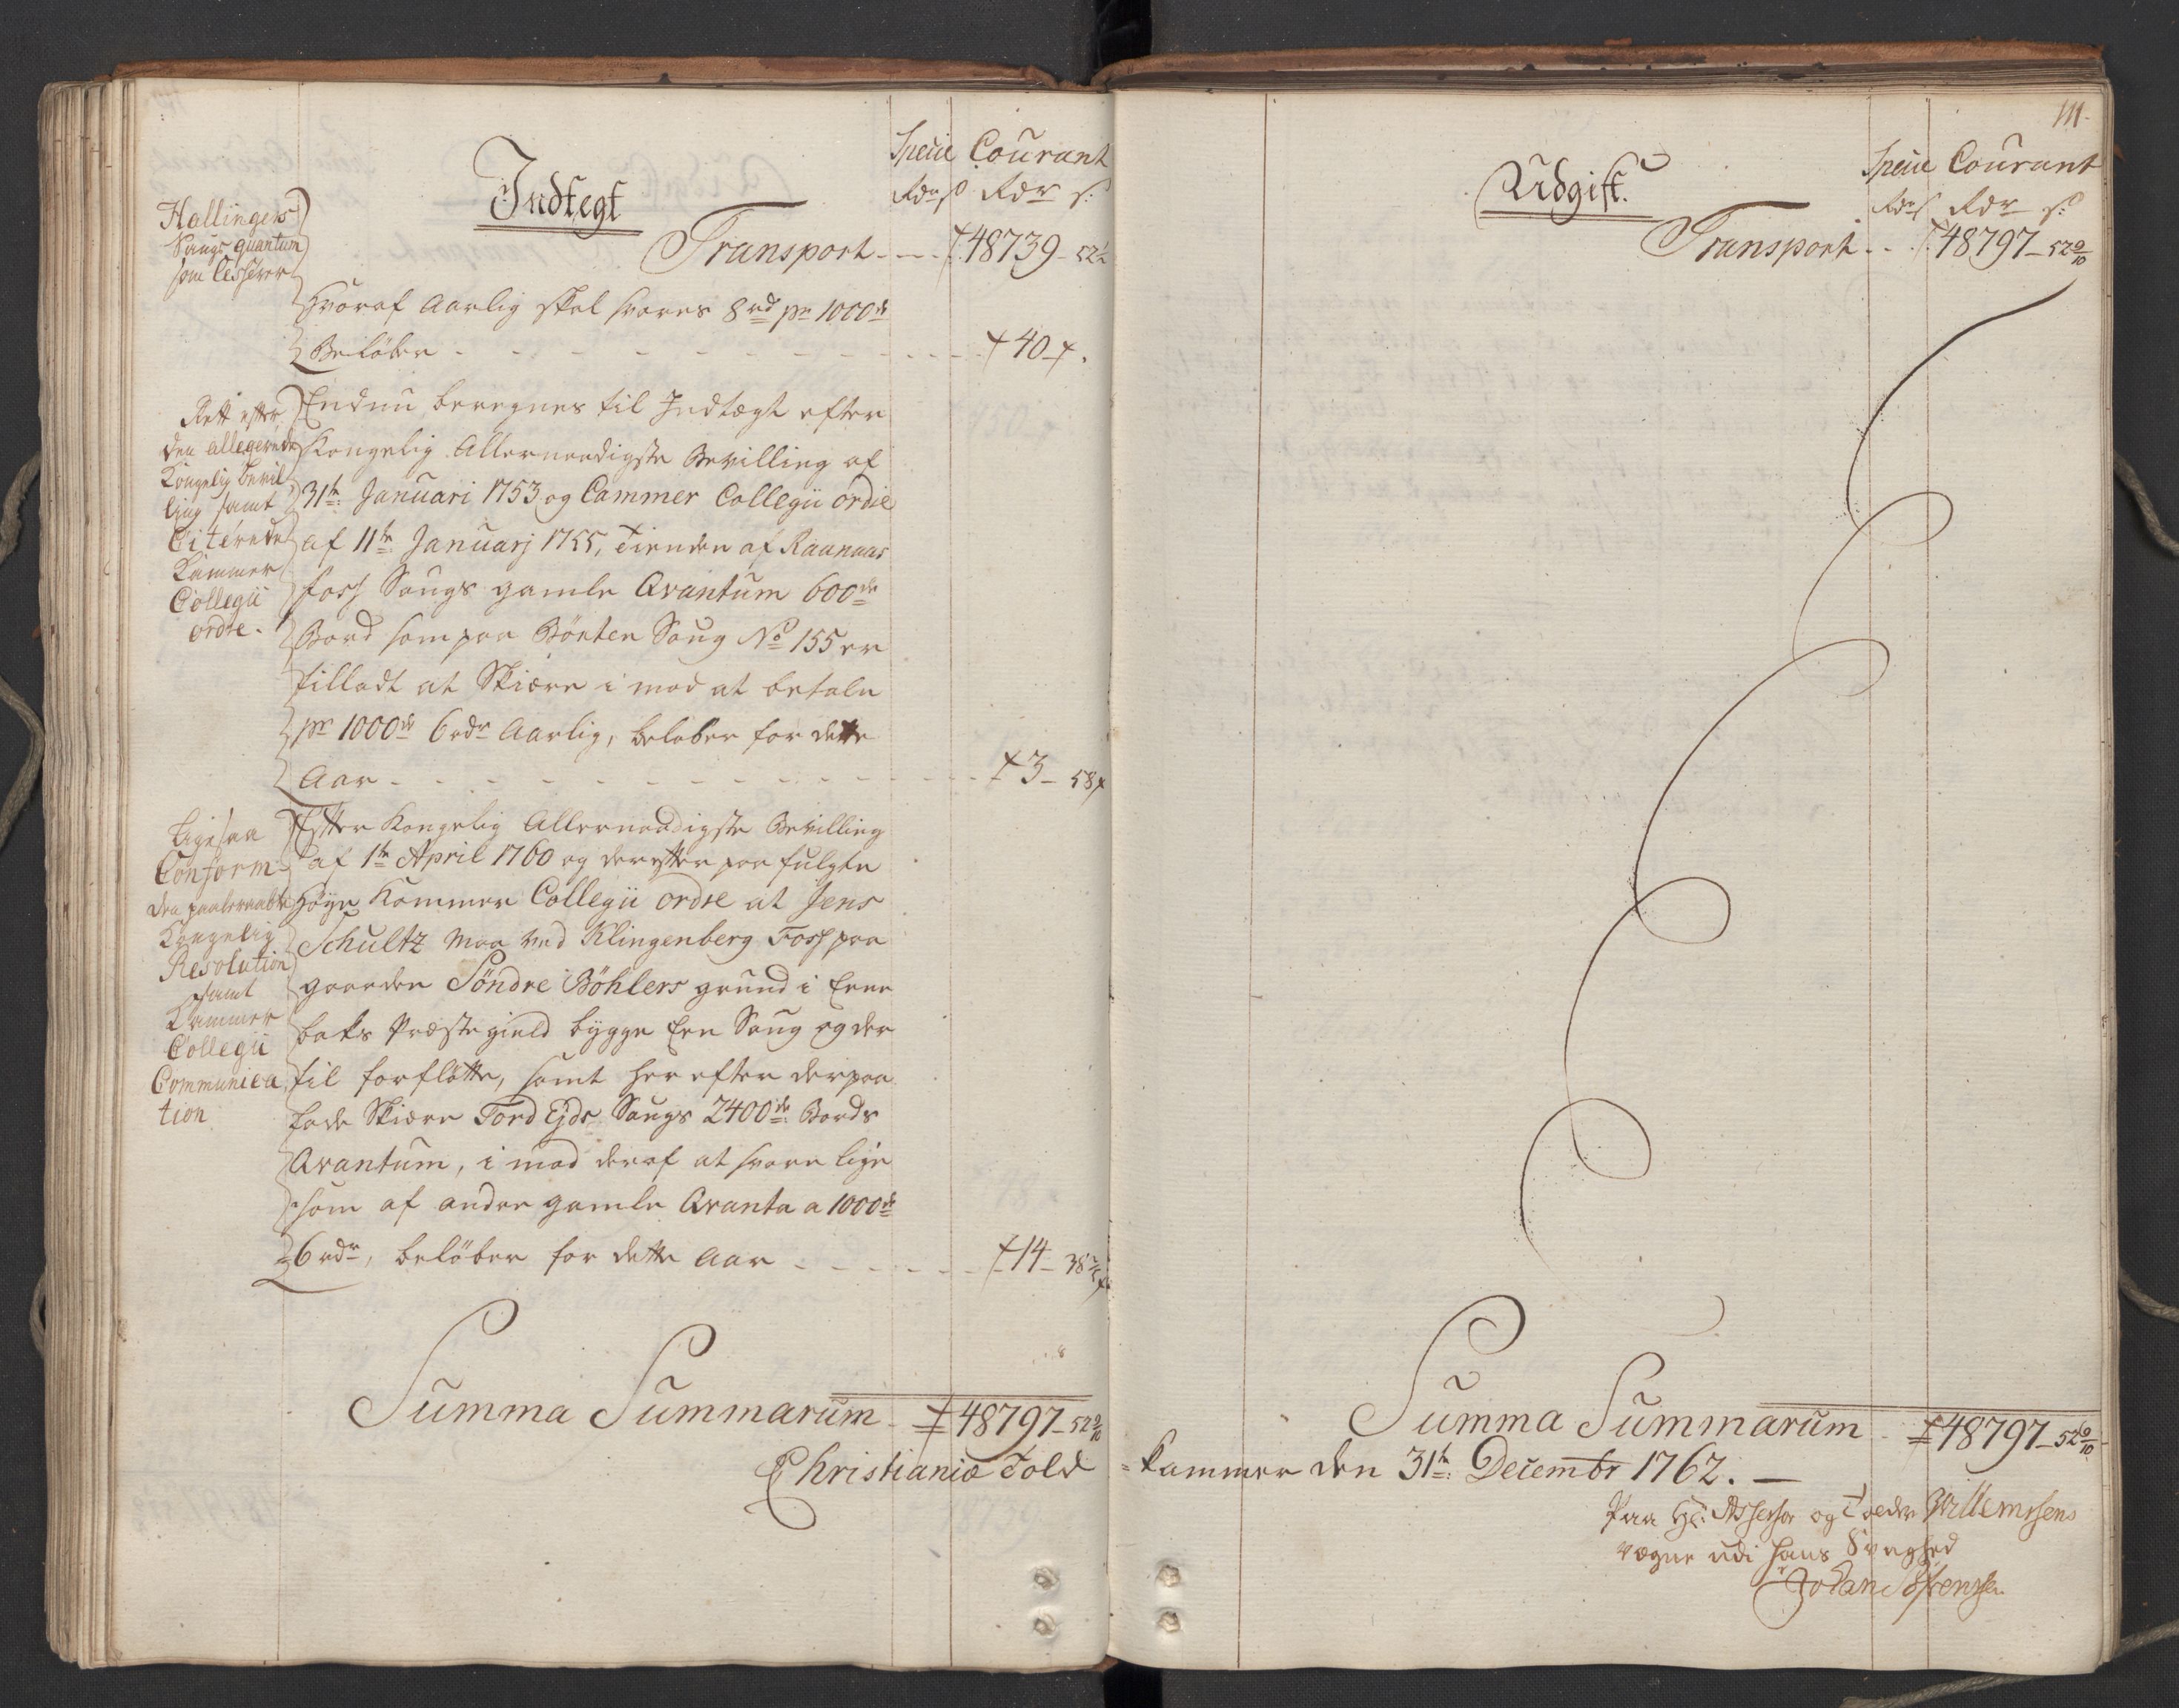 Specie Courant
Rdr s Rdr s:
Indtegt
Transport - - - 48739 - 52½
Hallingers
Saugs quantum
som Cesserer
Hvoraf Aarlig skal svares 8 rd pr 1000de
Beløber - - - 40 -
Rett efter
den allegerede
Kongelig bevil
ling samt
Citerede
Kammer
Collegii
ordre.
Endnu beregnes til Indtægt efter
Kongelig Allernaadigste Bevilling af
31te Januari 1753 og Cammer Collegii ordre
af 11te Januarj 1755, Tienden af Raanaas
foss Saugs gamle Qvantum 600de
Bord som paa Bönten Saug No 155 er
tilladt at Skiære i mod at betale
pr 1000de 6 rdr Aarlig, beløber for dette
Aar - - - 3 - 58
Ligesaa
Conform
den paaberaabte
Kongelig
Resolution
samt
Kammer
Collegii
Communica
tion
Efter Kongelig Allernaadigste Bevilling
af 1te April 1760 og derefter paa fulgte
Høye Kammer Collegii ordre at Jens
Schultz maa ved Klingenberg Foss paa
gaarden Söndre Böhlers grund i Enne
baks Præstegield bygge Een Saug og der
til forflötte, samt her efter derpaa
lade Skiære Tord Ejds Saugs 2400de Bords
Qvantum, i mod deraf at svare lige
som af andre gamle Qvanta a 1000de
6 rdr, beløber for dette Aar - - - 14 - 38 2/5
Summa Summarum - 48797 - 52 9/10
Christianiæ Told
111.
Specie Courant
Rdr s Rdr s:
Udgift.
Transport - - 48797 - 52 9/10
Summa Summarum - 48797 - 52 9/10
= Kammer den 31te Decembr 1762. -
Paa Hr: Assessor og Tolder Willemsens
vegne udi hans Svaghed
Johan Sörensen